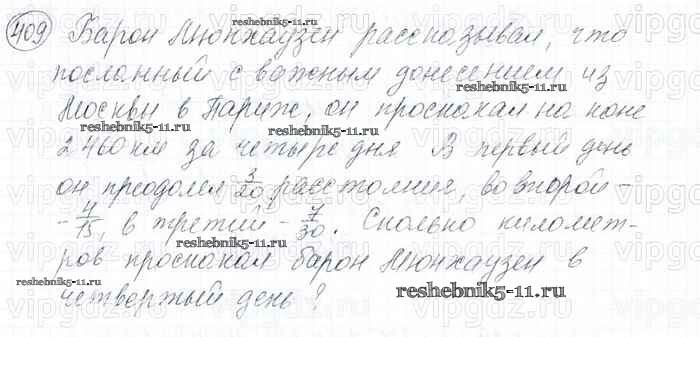 409 Барон Мюнхаузен рассказывал, что
посланный с важным донесением из
Москвы в Париж, он проскакал на коне
2460 км за четыре дня. В первый день
он преодолел 3/20 расстояния, во второй -
- 4/15, в третий - 7/30. Сколько километ-
ров проскакал барон Мюнхаузен в
четвертый день?
reshebnik5-11.ru
reshebnik5-11.ru
reshebnik5-11.ru
reshebnik5-11.ru
reshebnik5-11.ru
reshebnik5-11.ru
reshebnik5-11.ru
reshebnik5-11.ru
vipgdz.ru